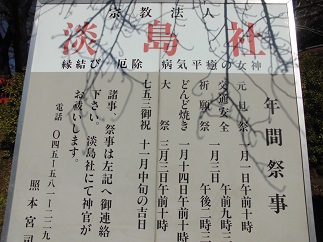 宗教法人
淡島社
縁結び 厄除 病気平癒の女神
年間祭事
元旦祭 一月一日午前十時
交通安全
祈願祭 一月三日 午前九時
午後二時
どんど焼き 一月十四日午前十時
大祭 三月三日午前十時
七五三御祝 十一月中旬の吉日
諸事、祭事は左記へ御連絡
下さい。淡島社にて神官が
お祓いします。
電話 〇四五-五八一-二二九
照本宮司